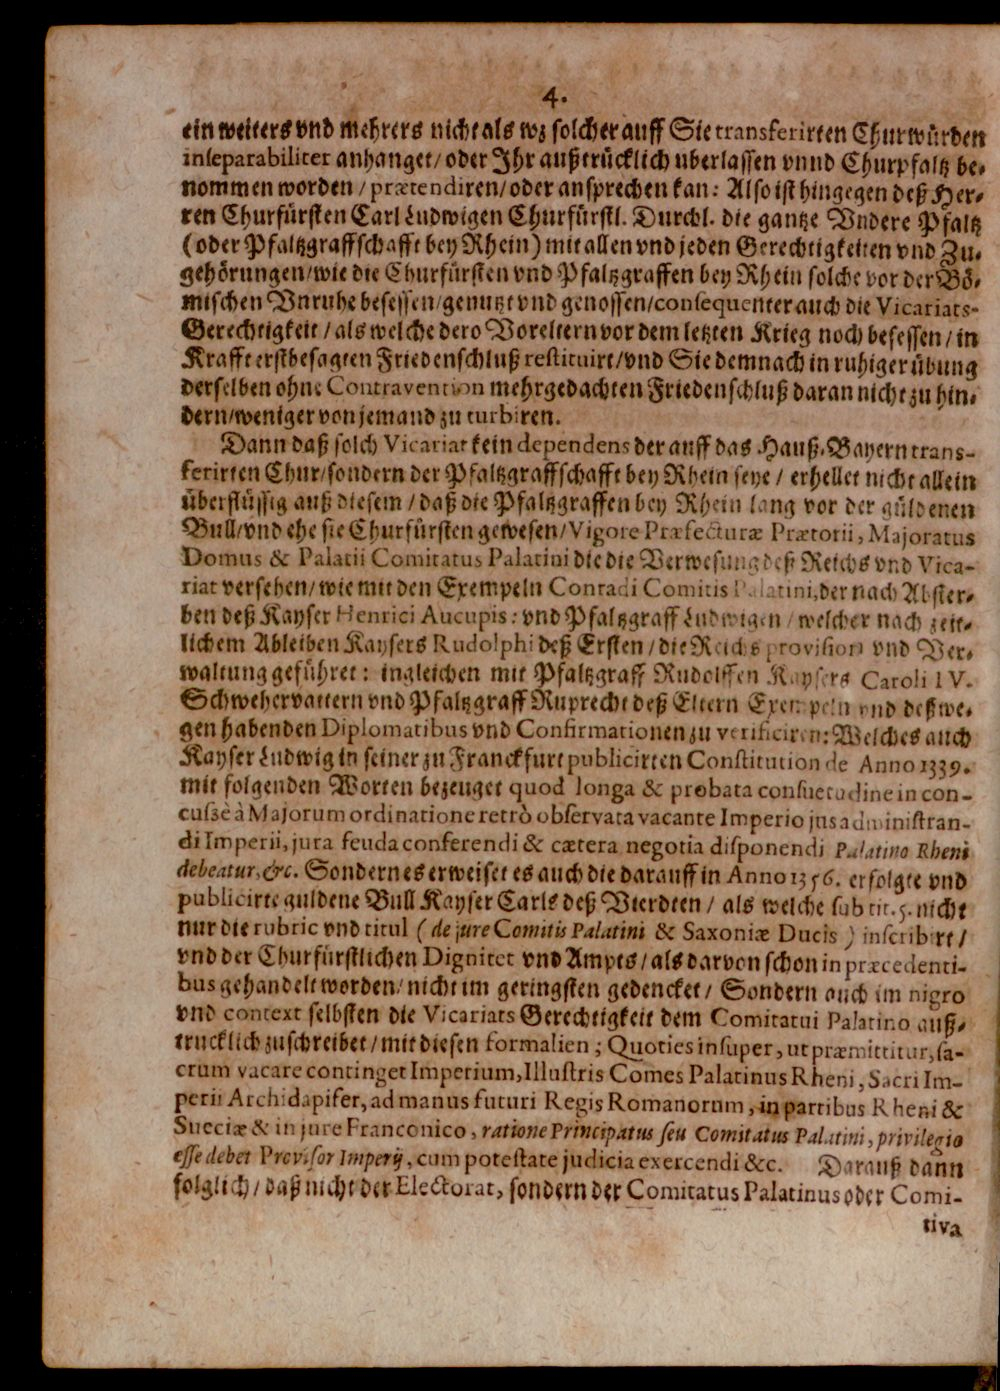 4.
ein weiters vnd mehrers nicht als wz solcher auff Sie transferirten Churwürden
inseparabiliter anhanget/ oder Ihr außtrücklich uberlassen vnnd Churpfaltz be-
nommen worden / prætendiren/ oder ansprechen kan: Also ist hingegen deß Her-
ren Churfürsten Carl Ludwigen Churfürstl. Durchl. die gantze Vndere Pfaltz
(oder Pfaltzgraffschafft bey Rhein) mit allen vnd jeden Gerechtigkeiten vnd Zu-
gehörungen/ wie die Churfürsten vnd Pfaltzgraffen bey Rhein solche vor der Bö-
mischen Vnruhe besessen/ genutzt vnd genossen/ consequenter auch die Vicariats-
Gerechtigkeit / als welche dero Voreltern vor dem letzten Krieg noch besessen / in
Krafft erstbesagten Friedenschluß restituirt/ vnd Sie demnach in ruhiger übung
derselben ohne Contravention mehrgedachten Friedenschluß daran nicht zu hin-
dern/ weniger von jemand zu turbiren.
Dann daß solch Vicariat kein dependens der auff das Hauß-Bayern trans-
ferirten Chur/ sondern der Pfaltzgraffschafft bey Rhein seye / erhellet nicht allein
überflüssig auß diesem / daß die Pfaltzgraffen bey Rhein lang vor der güldenen
Bull/ vnd ehe sie Churfürsten gewesen/ Vigore Præfecturæ Prætorii, Majoratus
Domus & Palatii Comitatus Palatini die die Verwesung deß Reichs vnd Vica-
riat versehen/ wie mit den Exempeln Conradi Comitis Palatini, der nach Abster-
ben deß Kayser Henrici Aucupis: vnd Pfaltzgraff Ludwigen / welcher nach zeit-
lichem Ableiben Kaysers Rudolphi deß Ersten / die Reichs provision vnd Ver-
waltung geführet: ingleichen mit Pfaltzgraff Rudolffen Kaysers Caroli IV.
Schwehervattern vnd Pfaltzgraff Ruprecht deß Eltern Exempeln vnd deßwe-
gen habenden Diplomatibus vnd Confirmationen zu verificiren: Welches auch
Kayser Ludwig in seiner zu Franckfurt publicirten Constitution de Anno 1339.
mit folgenden Worten bezeuget quod longa & probata consuetudine in con-
cussè à Majorum ordinatione retrò observata vacante Imperio jus administran-
di Imperii, jura feuda conferendi & cætera negotia disponendi Palatino Rheni
debeatur, &c. Sondern es erweiset es auch die darauff in Anno 1356. erfolgte vnd
publicirte guldene Bull Kayser Carls deß Vierdten / als welche sub tit. 5. nicht
nur die rubric vnd titul ( de jure Comitis Palatini & Saxoniæ Ducis ) inscribirt /
vnd der Churfürstlichen Dignitet vnd Ampts / als darvon schon in præcedenti-
bus gehandelt worden/ nicht im geringsten gedencket / Sondern auch im nigro
vnd context selbsten die Vicariats Gerechtigkeit dem Comitatui Palatino auß-
trucklich zuschreibet / mit diesen formalien ; Quoties insuper, ut præmittitur, sa-
crum vacare continget Imperium, Illustris Comes Palatinus Rheni, Sacri Im-
perii Archidapifer, ad manus futuri Regis Romanorum, in partibus Rheni &
Sueciæ & in jure Franconico, ratione Principatus seu Comitatus Palatini, privilegio
esse debet Provisor Imperij, cum potestate judicia exercendi &c. Darauß dann
folglich / daß nicht der Electorat, sondern der Comitatus Palatinus oder Comi-
tiva